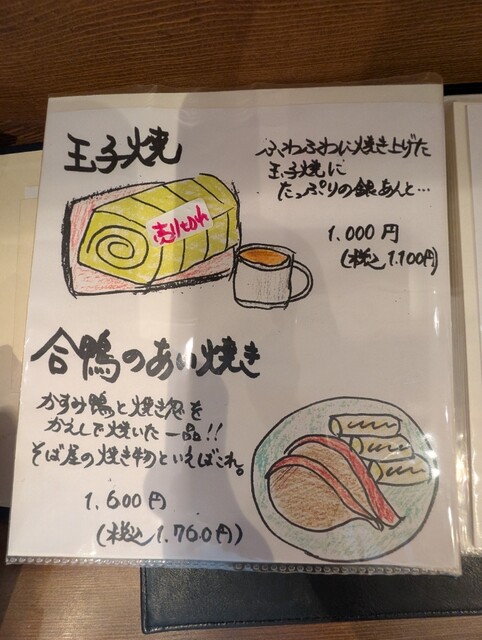 玉子焼
ふわふわに焼き上げた
玉子焼に
たっぷりの銀あんと…
売り切れ
1.000円
(税込1.100円)
合鴨のあい焼き
かすみ鴨と焼き葱を
かえしで焼いた一品!!
そば屋の焼き物といえばこれ。
1.600円
(税込1.760円)